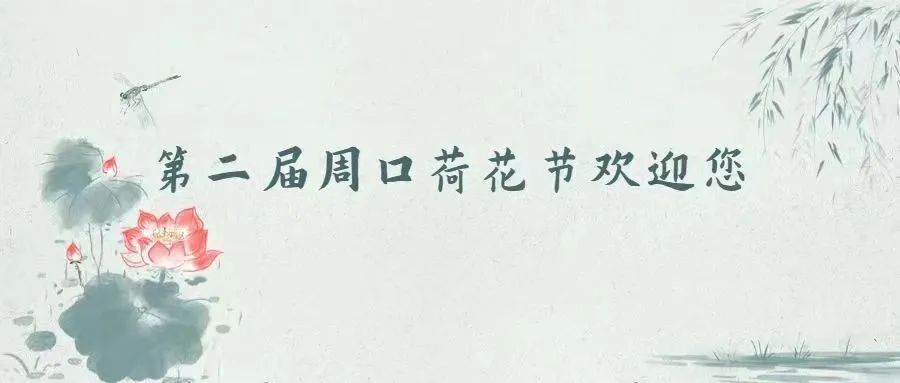 第二届周口荷花节欢迎您